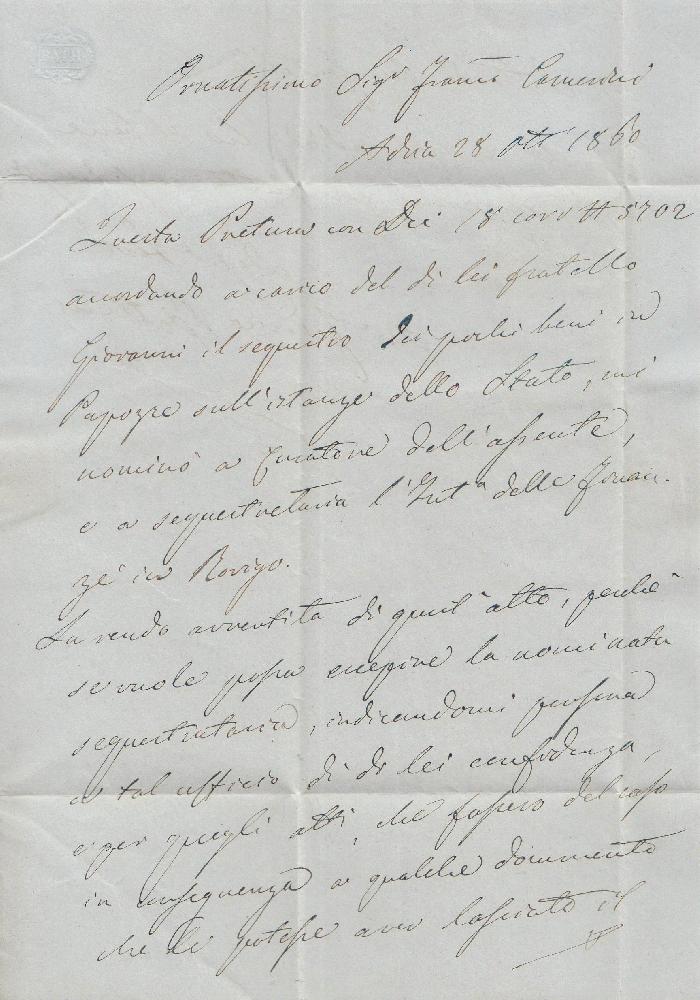 Ornatissimo Sigr Franco Camerini
Adria 28 Ott 1860
Questa Pretura con Dei 18 corr N 5702
accordando a carico del di lei fratello
Giovanni il sequestro dei pochi beni in
Papozze sull'istanza dello Stato, mi
nominò a Curatore dell'assente,
e a sequestrataria l'Inta delle Finan-
ze in Rovigo.
La rendo avvertita di quest'atto, perchè
se vuole possa eccepire la nominata
sequestrataria, indicandomi persona
a tal ufficio di di lei confidenza,
e per quegli atti, che fossero del caso
in conseguenza a qualche documento
che le potesse aver lasciato il